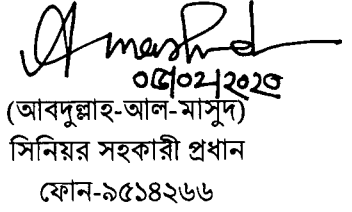 ০৫/০২/২০২০
(আবদুল্লাহ-আল-মাসুদ)
সিনিয়র সহকারী প্রধান
ফোন-৯৫১৪২৬৬